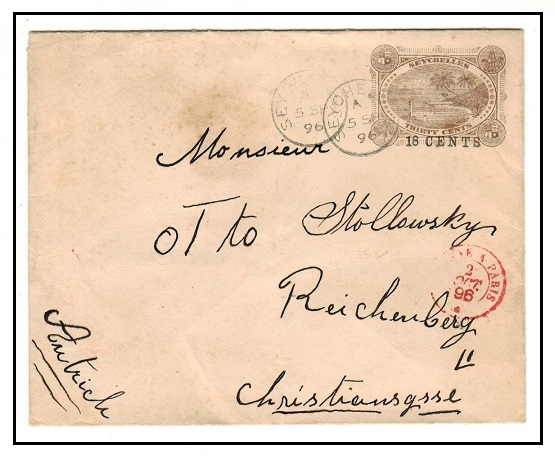 SEYCHELLES
THIRTY CENTS
18 CENTS
SEYCHE
A
5 SE
96
A
5 S
96
Monsieur
OTto Stollowsky
Reichenberg
Christiansgsse
Autrich
A PARIS
2
OCT
96